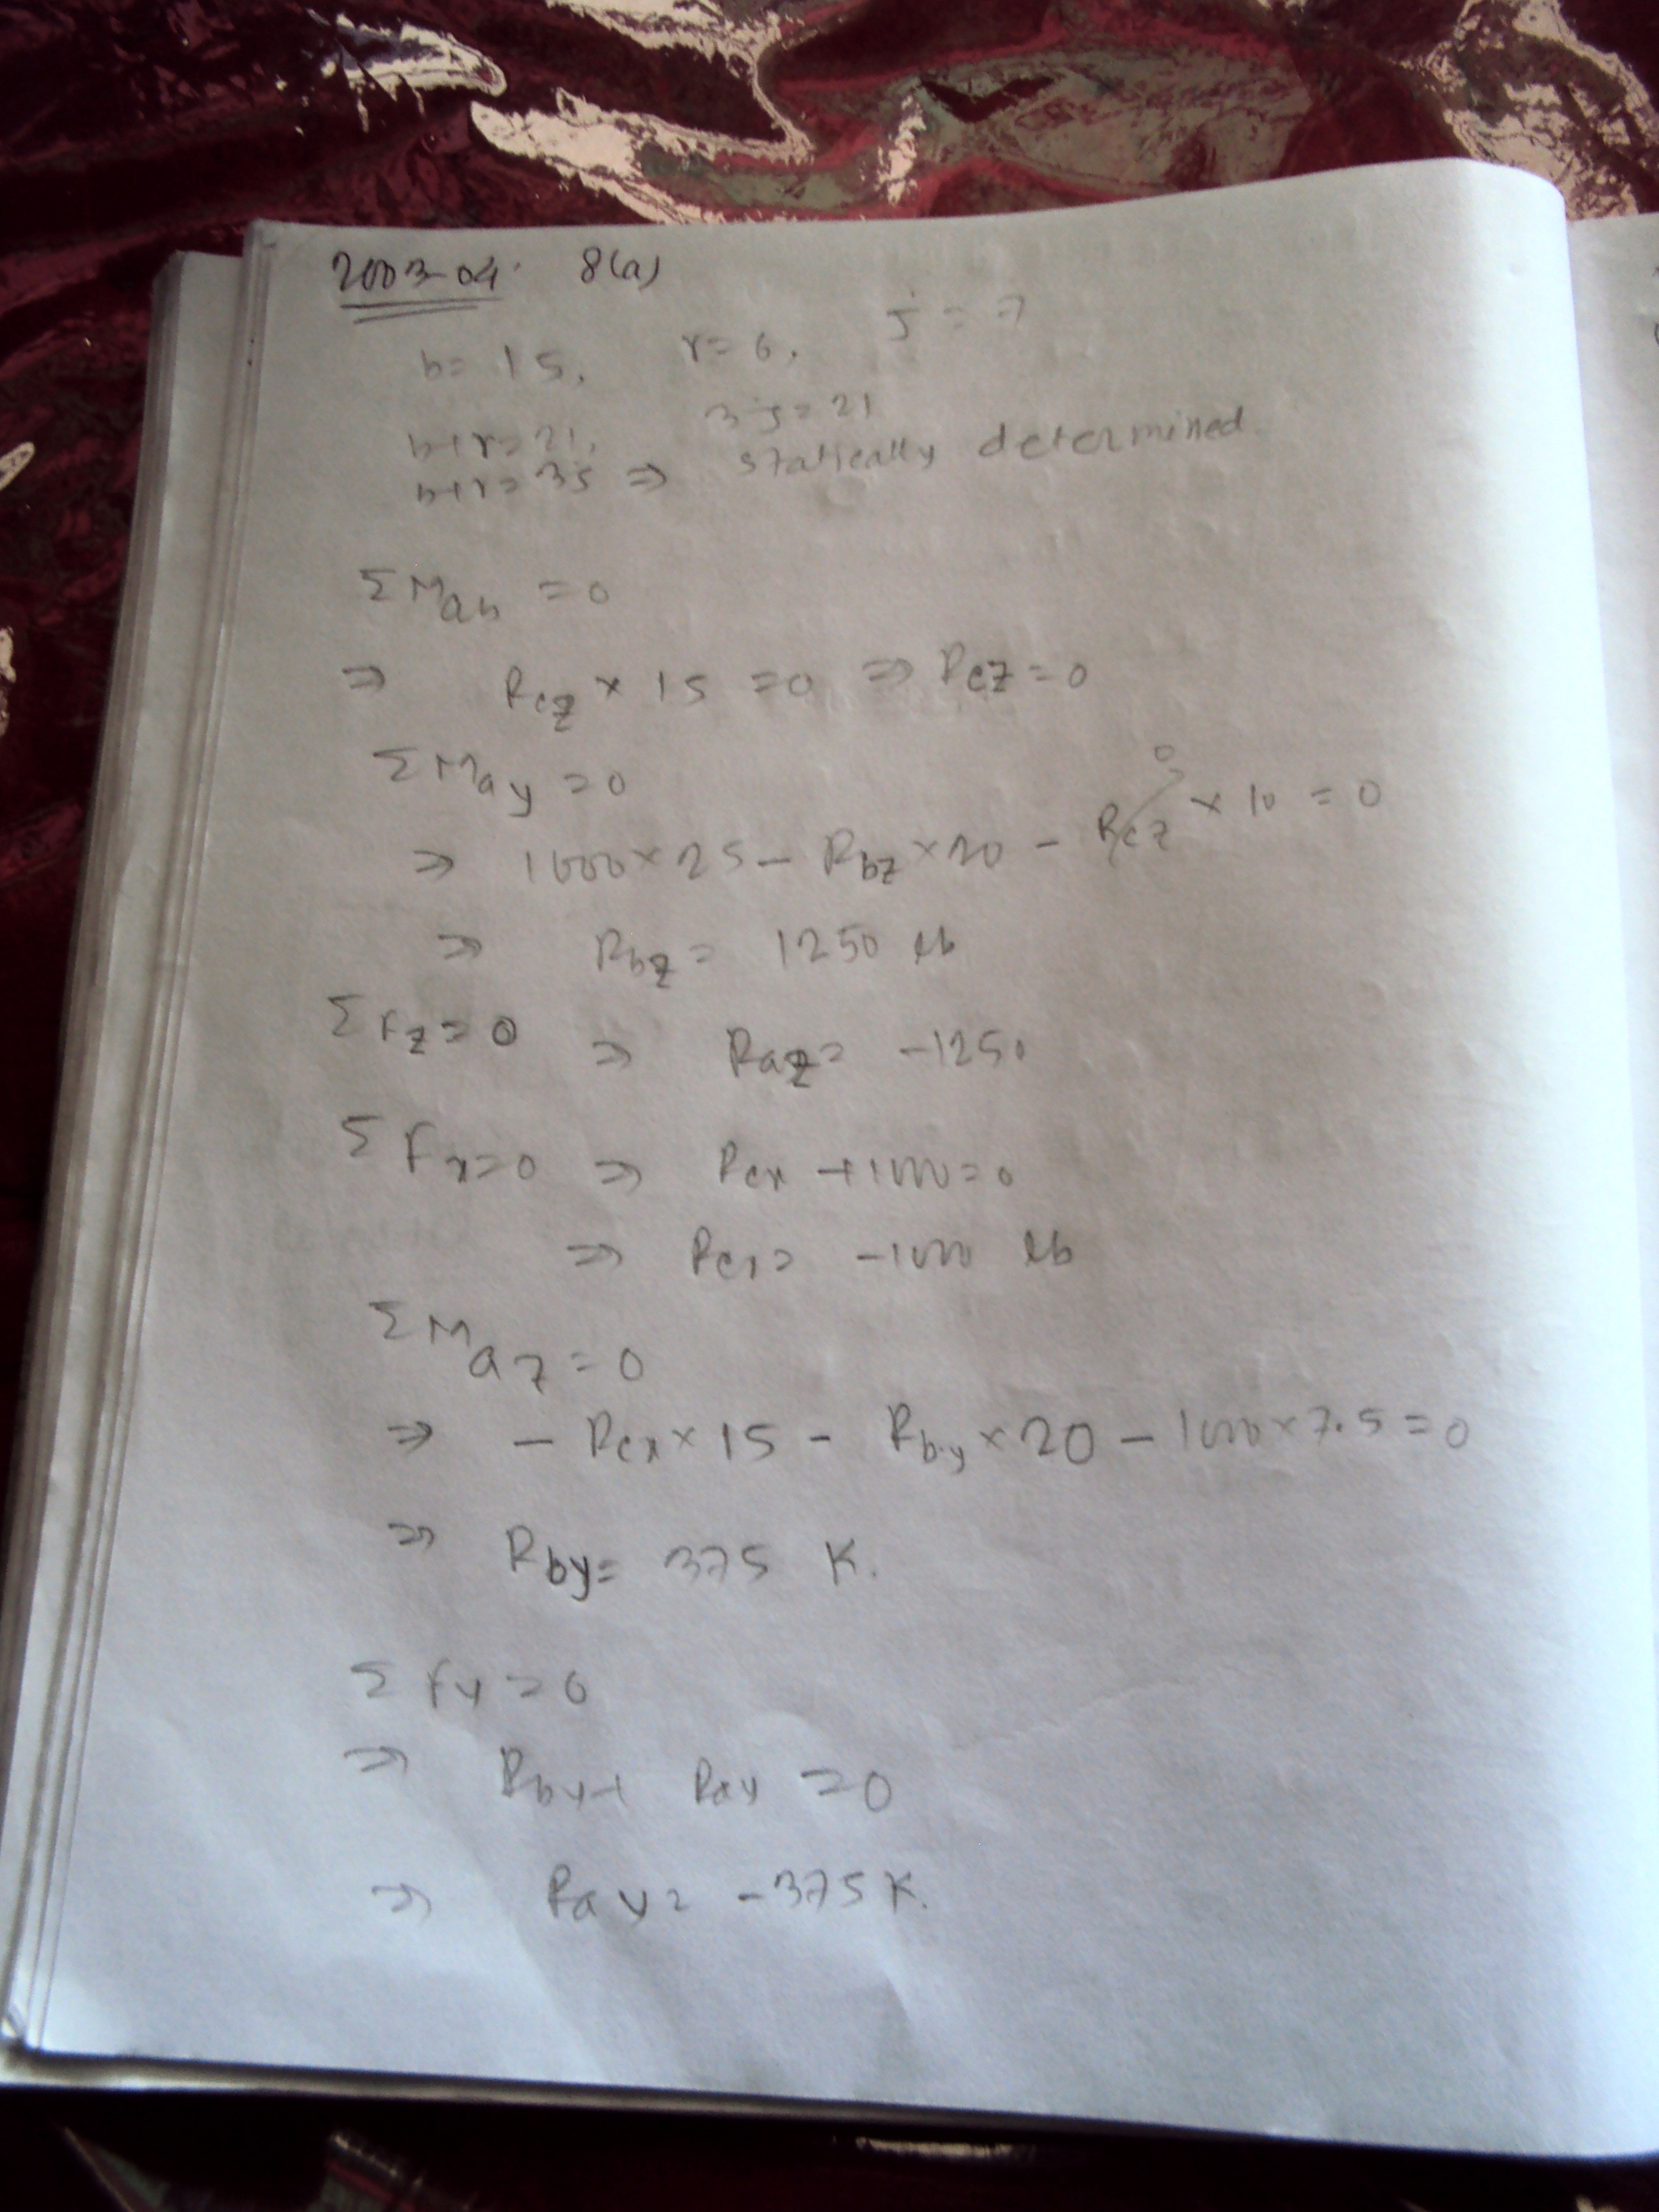 2003-04. 8(a)
b= 15, r= 6, j = 7
b+r=21, 3j=21
b+r=3j ⇒ statically determined.
ΣM_ab = 0
⇒ R_cz × 15 = 0 ⇒ R_cz = 0
ΣM_ay = 0
⇒ 1000×25 - R_bz × 20 - R_cz × 10 = 0
⇒ R_bz = 1250 lb
ΣF_z = 0 ⇒ R_az = -1250
ΣF_x = 0 ⇒ R_cx + 1000 = 0
⇒ R_cx = -1000 lb
ΣM_az = 0
⇒ - R_cx × 15 - R_by × 20 - 1000 × 7.5 = 0
⇒ R_by = 375 K.
ΣF_y = 0
⇒ R_by + R_ay = 0
⇒ R_ay = -375 K.